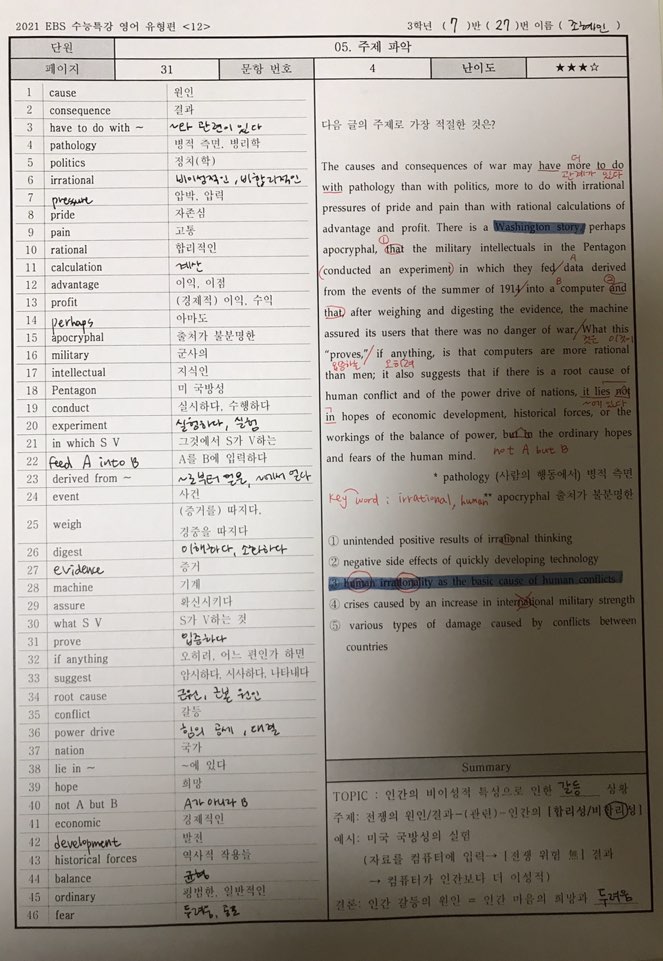 2021 EBS 수능특강 영어 유형편 <12>
3학년 ( 7 )반 ( 27 )번 이름 ( 조혜민 )
단원 05. 주제 파악
페이지 31 문항 번호 4 난이도 ★★★☆
1 cause 원인
2 consequence 결과
3 have to do with ~ ~와 관련이 있다
4 pathology 병적 측면, 병리학
5 politics 정치(학)
6 irrational 비이성적인, 비합리적인
7 pressure 압박, 압력
8 pride 자존심
9 pain 고통
10 rational 합리적인
11 calculation 계산
12 advantage 이익, 이점
13 profit (경제적) 이익, 수익
14 perhaps 아마도
15 apocryphal 출처가 불분명한
16 military 군사의
17 intellectual 지식인
18 Pentagon 미 국방성
19 conduct 실시하다, 수행하다
20 experiment 실험하다, 실험
21 in which S V 그것에서 S가 V하는
22 feed A into B A를 B에 입력하다
23 derived from ~ ~로부터 얻은, ~에서 얻다
24 event 사건
25 weigh (증거를) 따지다,
경중을 따지다
26 digest 이해하다, 소화하다
27 evidence 증거
28 machine 기계
29 assure 확신시키다
30 what S V S가 V하는 것
31 prove 입증하다
32 if anything 오히려, 어느 편인가 하면
33 suggest 암시하다, 시사하다, 나타내다
34 root cause 근원, 근본 원인
35 conflict 갈등
36 power drive 힘의 공세, 대결
37 nation 국가
38 lie in ~ ~에 있다
39 hope 희망
40 not A but B A가 아니라 B
41 economic 경제적인
42 development 발전
43 historical forces 역사적 작용들
44 balance 균형
45 ordinary 평범한, 일반적인
46 fear 두려움, 공포
다음 글의 주제로 가장 적절한 것은?
더
The causes and consequences of war may have more to do
관계가 있다
with pathology than with politics, more to do with irrational
pressures of pride and pain than with rational calculations of
advantage and profit. There is a Washington story, perhaps
①
apocryphal, that the military intellectuals in the Pentagon
A
(conducted an experiment) in which they fed/data derived
B ②
from the events of the summer of 1914/into a computer and
that, after weighing and digesting the evidence, the machine
assured its users that there was no danger of war./What this
것은 이것이
"proves,"/ if anything, is that computers are more rational
입증하는 오히려
than men; it also suggests that if there is a root cause of
human conflict and of the power drive of nations, it lies not
~에 있다
in hopes of economic development, historical forces, or the
workings of the balance of power, but in the ordinary hopes
and fears of the human mind. not A but B
* pathology (사람의 행동에서) 병적 측면
key word : irrational, human ** apocryphal 출처가 불분명한
① unintended positive results of irrational thinking
② negative side effects of quickly developing technology
③ human irrationality as the basic cause of human conflicts
④ crises caused by an increase in international military strength
⑤ various types of damage caused by conflicts between
countries
Summary
TOPIC : 인간의 비이성적 특성으로 인한 갈등 상황
주제: 전쟁의 원인/결과-(관련)-인간의 [합리성/비합리성]
예시: 미국 국방성의 실험
(자료를 컴퓨터에 입력→ [전쟁 위험 無] 결과
→ 컴퓨터가 인간보다 더 이성적)
결론: 인간 갈등의 원인 = 인간 마음의 희망과 두려움